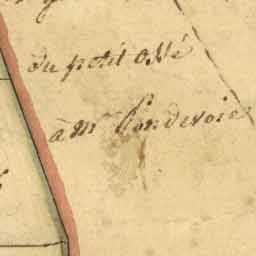 du petit Ossé
à Mr Pondevoie